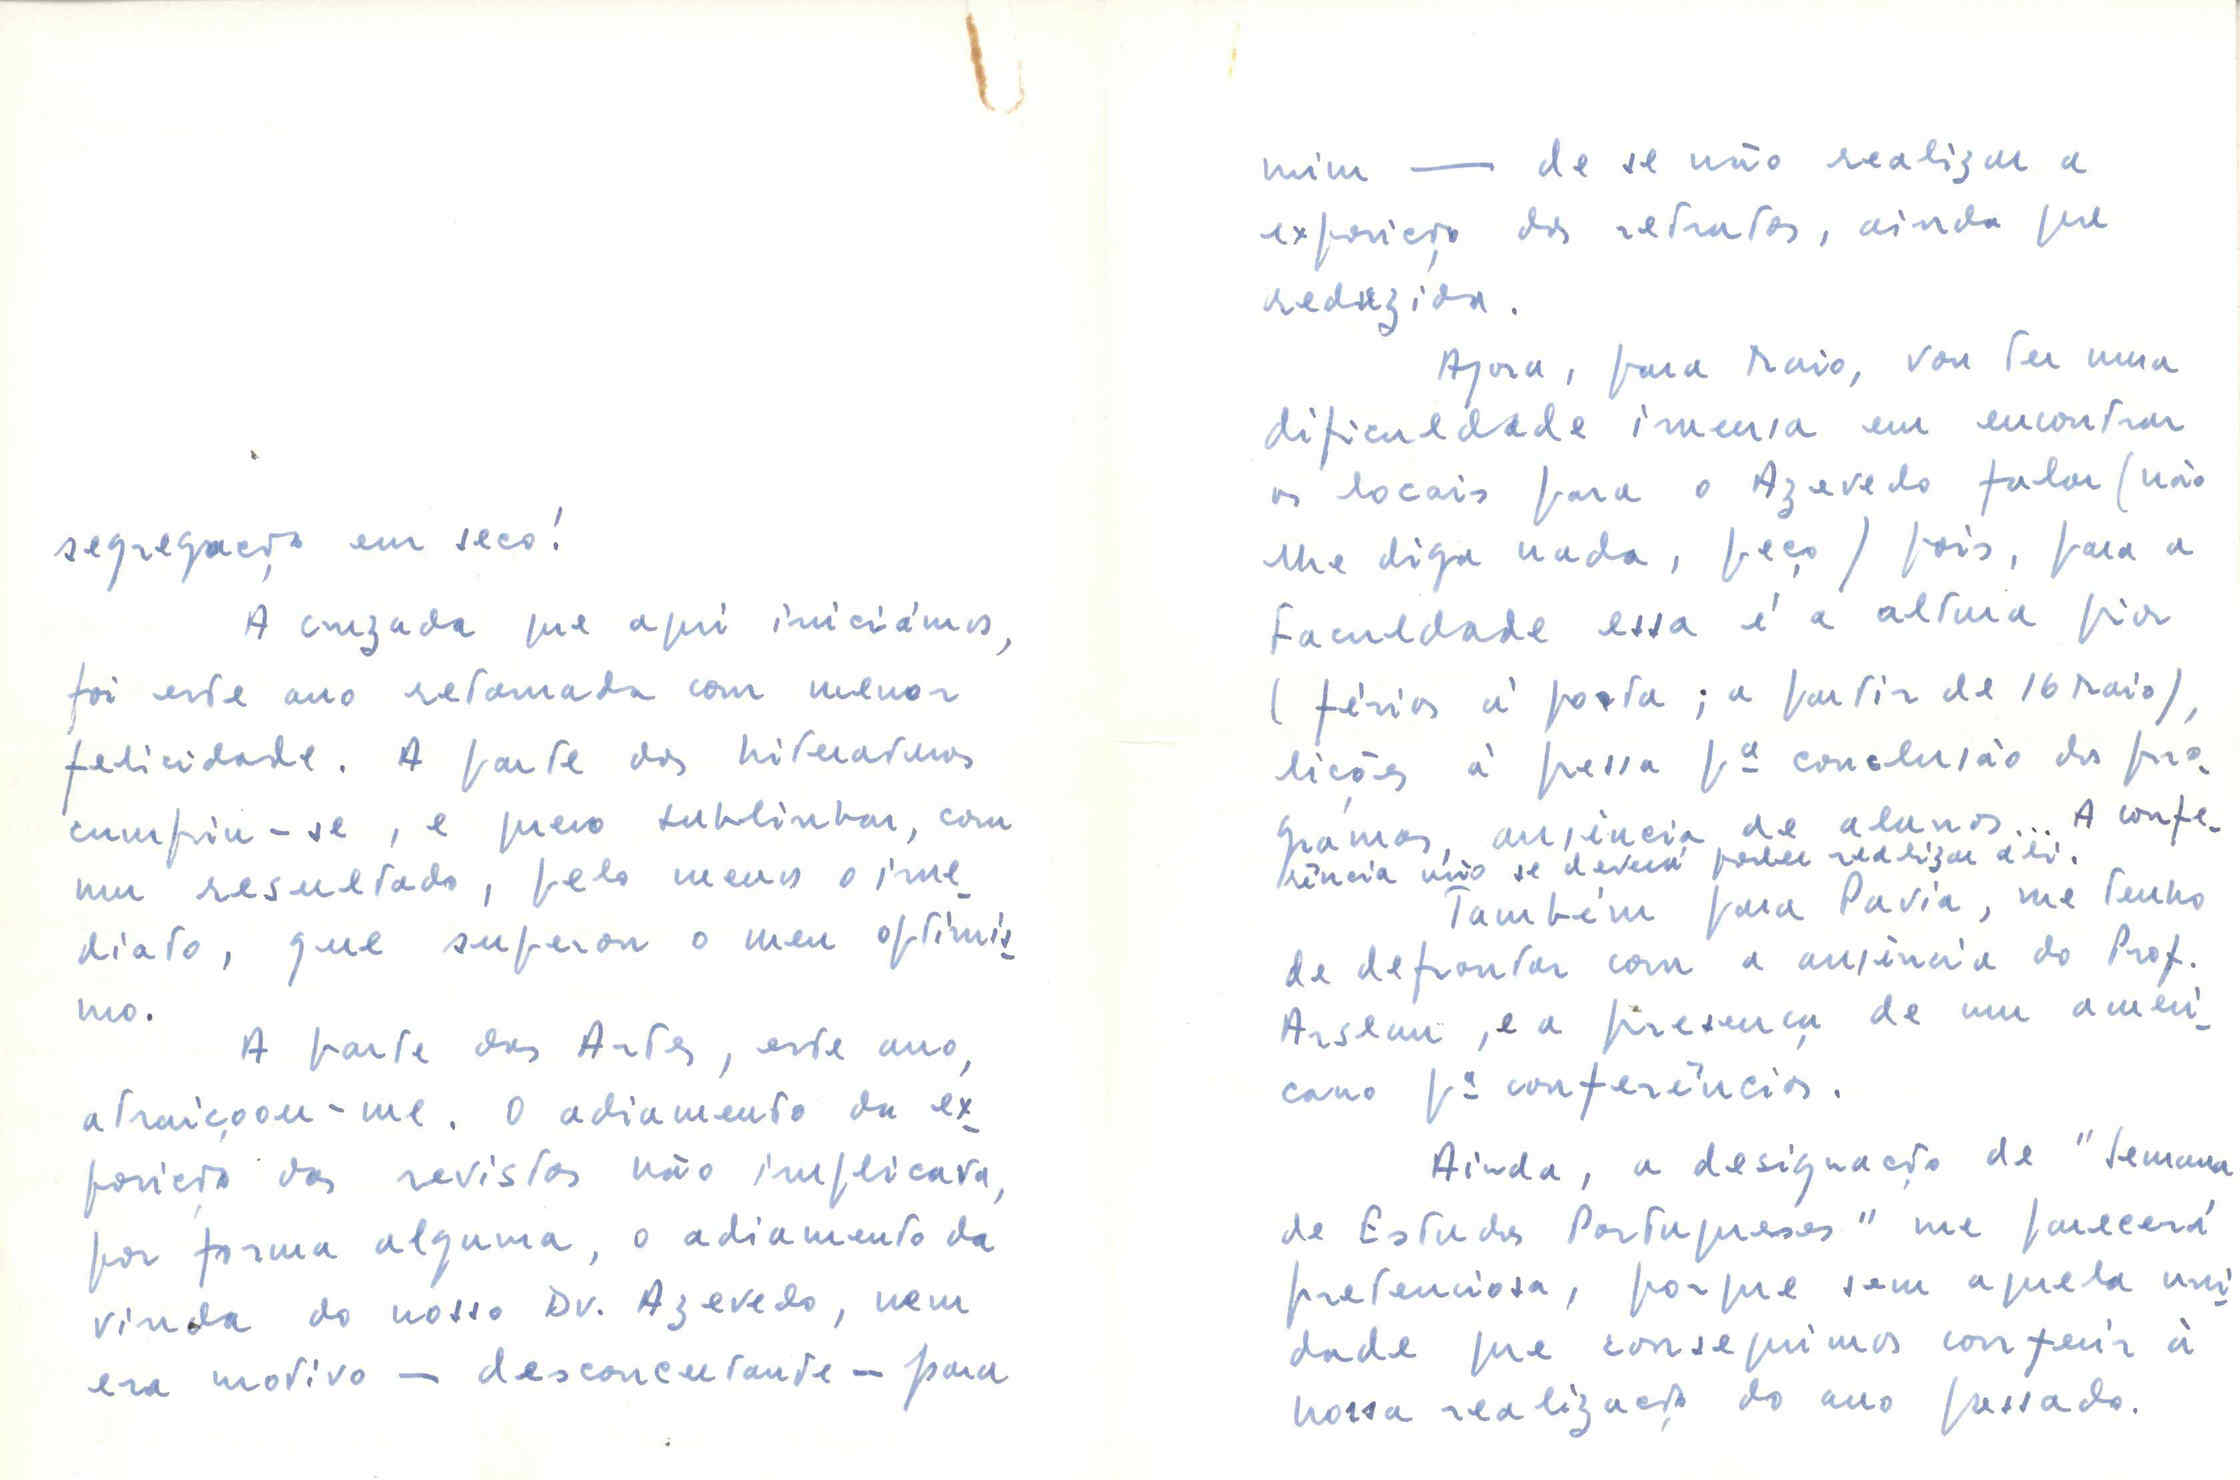 segregação em seco!
A cruzada que aqui iniciámos,
foi este ano retomada com menor
felicidade. A parte das Literaturas
cumpriu-se, e quero sublinhar, com
um resultado, pelo menos o ime-
diato, que superou o meu optimis-
mo.
A parte das Artes, este ano,
atraiçoou-me. O adiamento da ex-
posição das revistas não implicava,
por forma alguma, o adiamento da
vinda do nosso Dr. Azevedo, nem
era motivo — desconcertante — para
mim — de se não realizar a
exposição dos retratos, ainda que
reduzida.
Agora, para Maio, vou ter uma
dificuldade imensa em encontrar
os locais para o Azevedo falar (não
lhe diga nada, peço) pois, para a
Faculdade essa é a altura pior
(férias à porta; a partir de 16 Maio),
lições à pressa pª conclusão dos pro-
gramas, ausência de alunos... A confe-
rência não se deverá poder realizar ali.
Também para Pavia, me tenho
de defrontar com a ausência do Prof.
Arslan, e a presença de um ameri-
cano pª conferências.
Ainda, a designação de "Semana
de Estudos Portugueses" me parecerá
pretenciosa, porque sem aquela uni-
dade que conseguimos conferir à
nossa realização do ano passado.